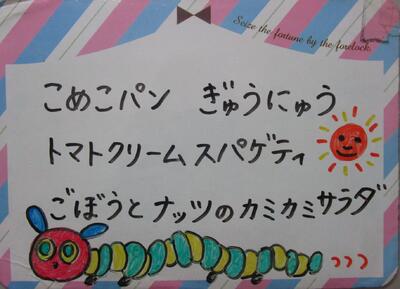 Seize the fortune by the forelock.
こめこパン ぎゅうにゅう
トマトクリームスパゲティ
ごぼうとナッツのカミカミサラダ